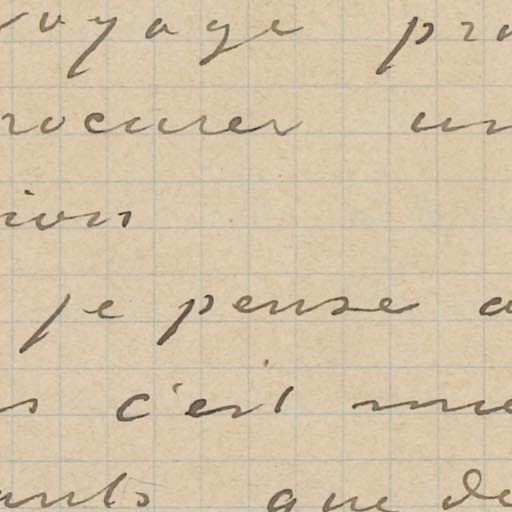 voyage pro
rocurer un
ion
je pense a
s c'est une
ants que de